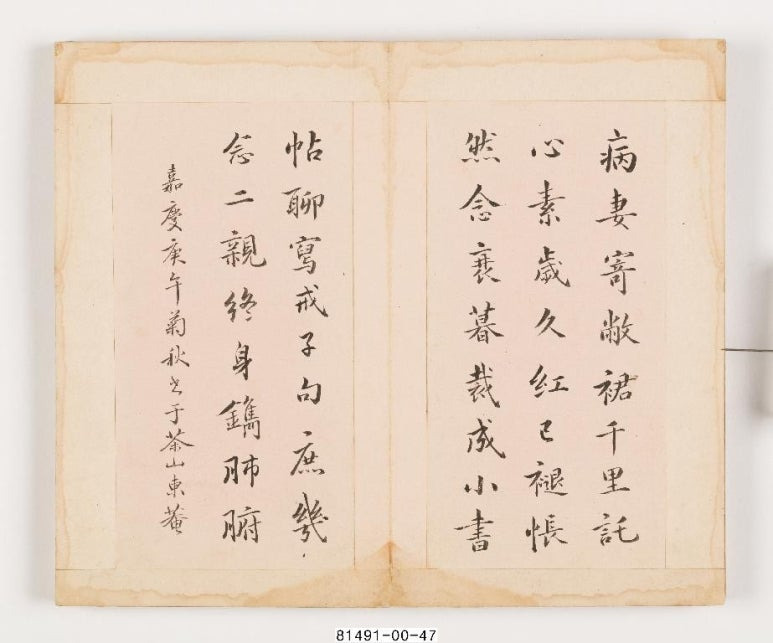 病妻寄敝裙千里託
心素歲久紅已褪悵
然念衰暮裁成小書
帖聊寫戒子句庶幾
念二親終身鐫肺腑
嘉慶庚午菊秋書于茶山東菴
81491-00-47